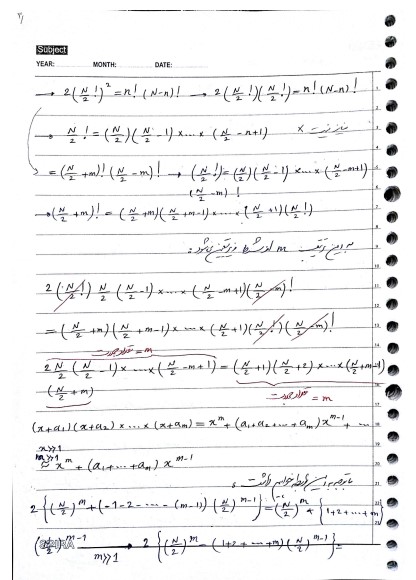 Subject
YEAR: MONTH: DATE:
→ 2(N/2 !)² = n! (N-n)! → 2(N/2 !)(N/2 !) = n! (N-n)!
→ N/2 ! = (N/2)(N/2 -1) × ... × (N/2 -n+1) ×
= (N/2 +m)! (N/2 -m)! → (N/2 !) = (N/2)(N/2 -1) × ... × (N/2 -m+1)
(N/2 -m)!
→ (N/2 +m)! = (N/2 +m)(N/2 +m-1) × ... × (N/2 +1)(N/2 !)
به این ترتیب m
2 (N/2 !) N/2 (N/2 -1) × ... × (N/2 -m+1)(N/2 -m)!
= (N/2 +m)(N/2 +m-1) × ... × (N/2 +1)(N/2 !)(N/2 -m)!
m = تعداد جملات
2 N/2 (N/2 -1) × ... × (N/2 -m+1) = (N/2 +1)(N/2 +2) × ... × (N/2 +m-1)
(N/2 +m)
m = تعداد جملات
(x+a₁)(x+a₂) × ... × (x+aₘ) = x^m + (a₁+a₂+...+aₘ) x^(m-1) + ...
x>>1
m>>1
≈ x^m + (a₁+...+aₘ) x^(m-1)
2 {(N/2)^m + (-1-2-...-(m-1))(N/2)^(m-1)} = (N/2)^m + {1+2+...+m}
(N/2)^(m-1) → m>>1 2 {(N/2)^m - (1+2+...+m)(N/2)^(m-1)} =